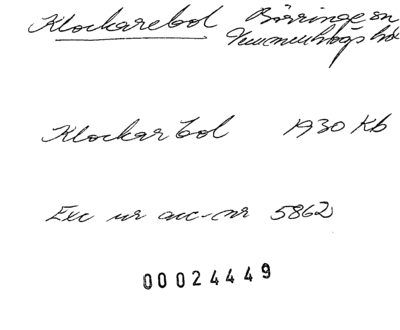 Klockarebol Börringe sn
Vemmenhögs hd
Klockarbol 1930 Kb
Exc ur acc-nr 5862
00024449